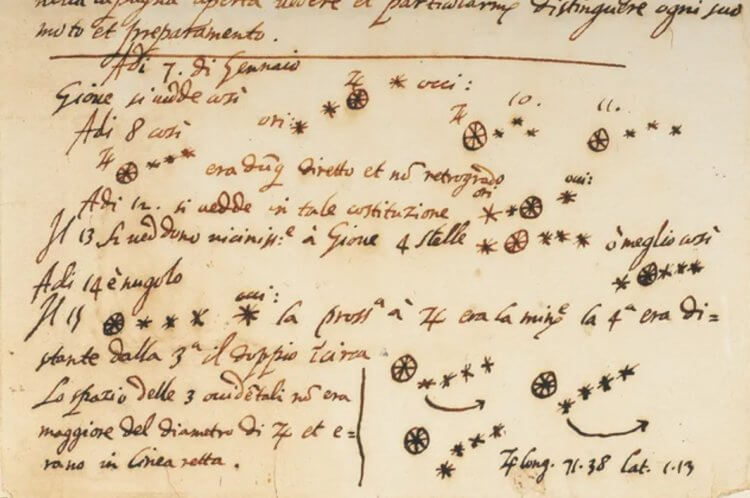 nella campagna aperta vedere et particularmᵉ distinguere ogni suo
moto et preparamento.
Adi 7. di Gennaio
Gioue si vedde così ori: ♃ occi:
Adi 8 così ♃ 10. 11.
♃ era dūq diretto et nō retrogrado
Adi 12. si vedde in tale costituzione ori: occi:
Il 13 si veddono vicinissᵉ à Gioue 4 stelle ò meglio così
Adi 14 è nugolo
Il 15 occi: la prossᵃ à ♃ era la minᵉ la 4ᵃ era di=
stante dalla 3ᵃ il doppio circa
Lo spazio delle 3 occidētali nō era
maggiore del diametro di ♃ et e=
rano in linea retta.
♃ long. 71.38 lat. 1.13